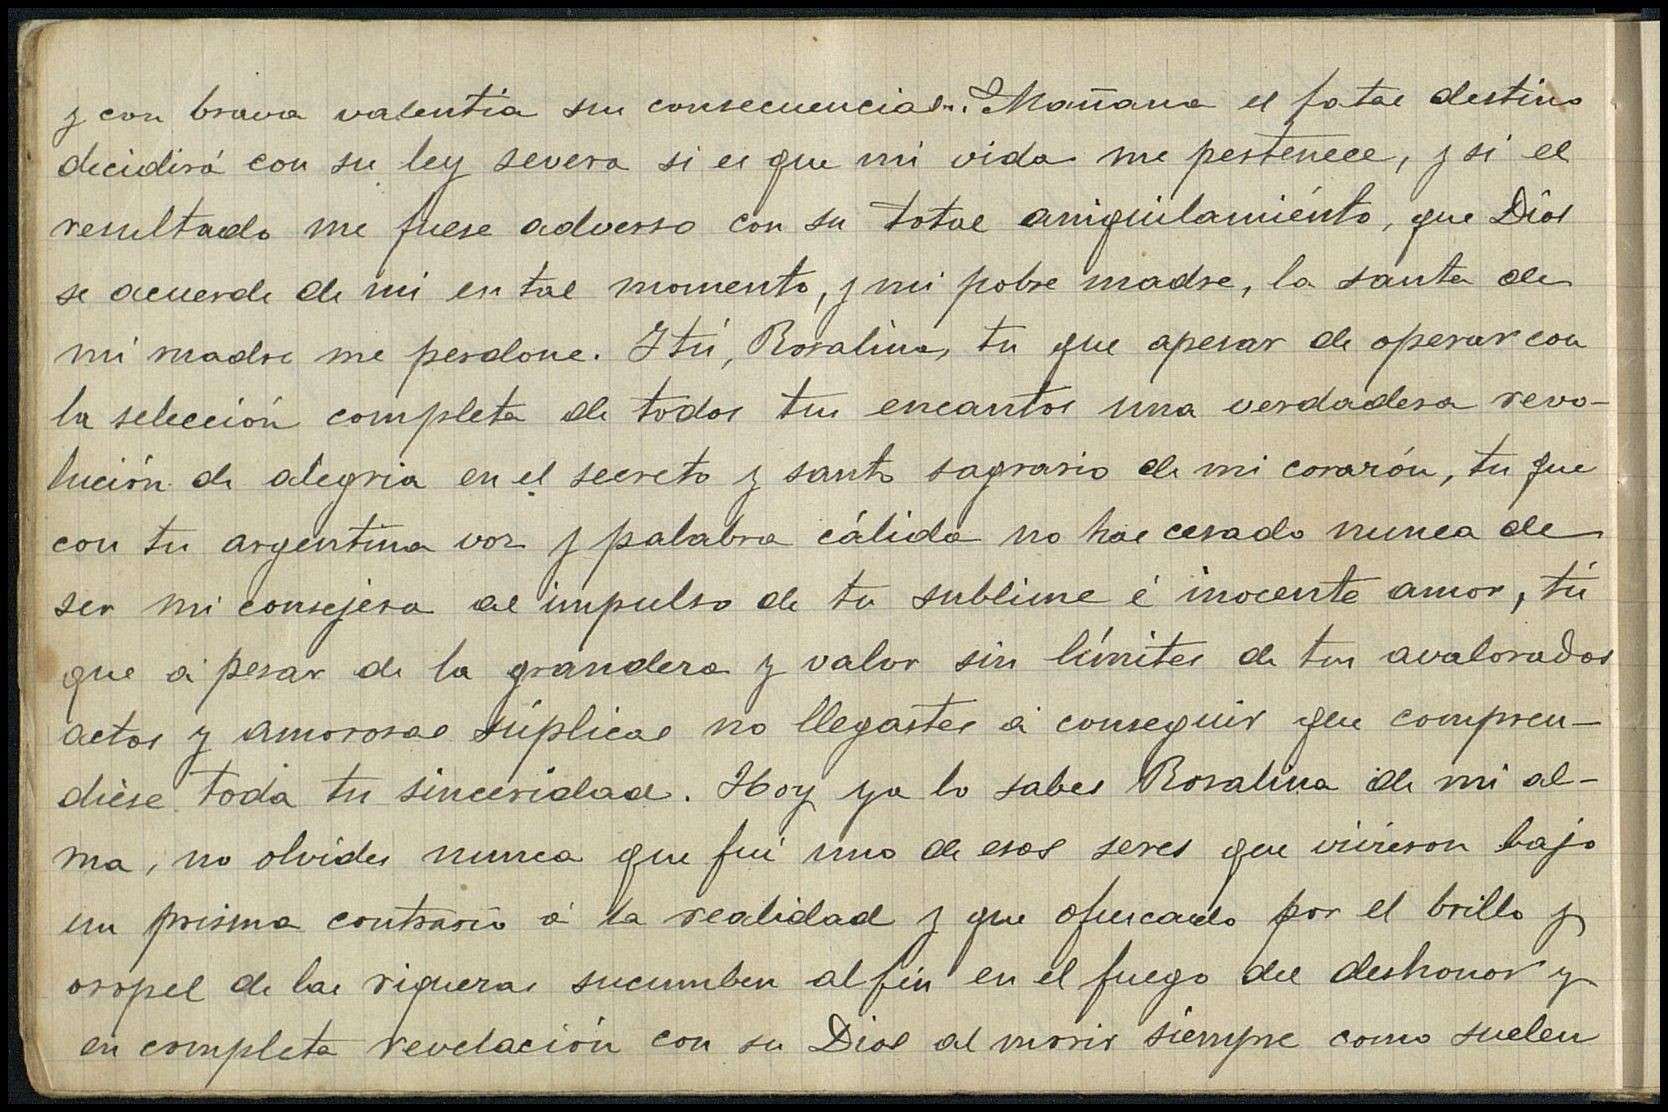 y con brava valentia sus consecuencias. Mañana el fatal destino
decidirá con su ley severa si es que mi vida me pertenece, y si el
resultado me fuese adverso con su total aniquilamiénto, que Dios
se acuerde de mi en tal momento, y mi pobre madre, la santa de
mi madre me perdone. Y tú, Rosalina, tu que apesar de operar con
la selección completa de todos tus encantos una verdadera revo-
lución de alegria en el secreto y santo sagrario de mi corazón, tu que
con tu argentina voz y palabra cálida no has cesado nunca de
ser mi consejera al impulso de tu sublime é inocente amor, tú
que á pesar de la grandeza y valor sin límites de tus avalorados
actos y amorosas súplicas no llegastes á conseguir que compren-
diese toda tu sinceridad. Hoy ya lo sabes Rosalina de mi al-
ma, no olvides nunca que fuí uno de esos seres que vivieron bajo
un prisma contrario á la realidad y que ofuscado por el brillo y
oropel de las riquezas sucumben al fin en el fuego del deshonor y
en completa revelación con su Dios al morir siempre como suelen